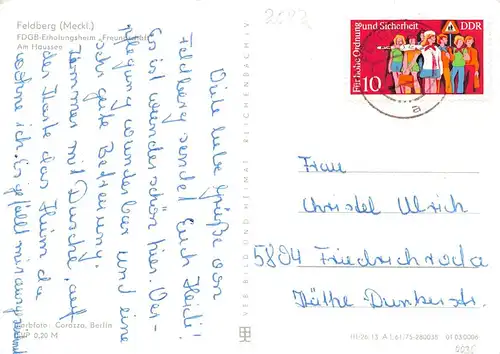 Feldberg (Meckl.)
FDGB-Erholungsheim „Freundschaft"
Am Haussee
Viele liebe Grüße von
Feldberg sendet Euch Heidi!
Es ist wunderschön hier. Ver-
pflegung wunderbar und eine
sehr gute Betreuung.
Zimmer mit Dusche, auf
der Karte das Heim da
wohne ich. Es gefällt mir
Farbfoto: Corazza, Berlin
EVP 0,20 M
VEB BILD UND HEIMAT REICHENBACH i. V.
Für hohe Ordnung und Sicherheit
DDR
10
a
Frau
Christel Ulrich
5804 Friedrichroda
Käthe Dunkerstr.
III/26/13 A 1,61/75-280035 01 03 0006